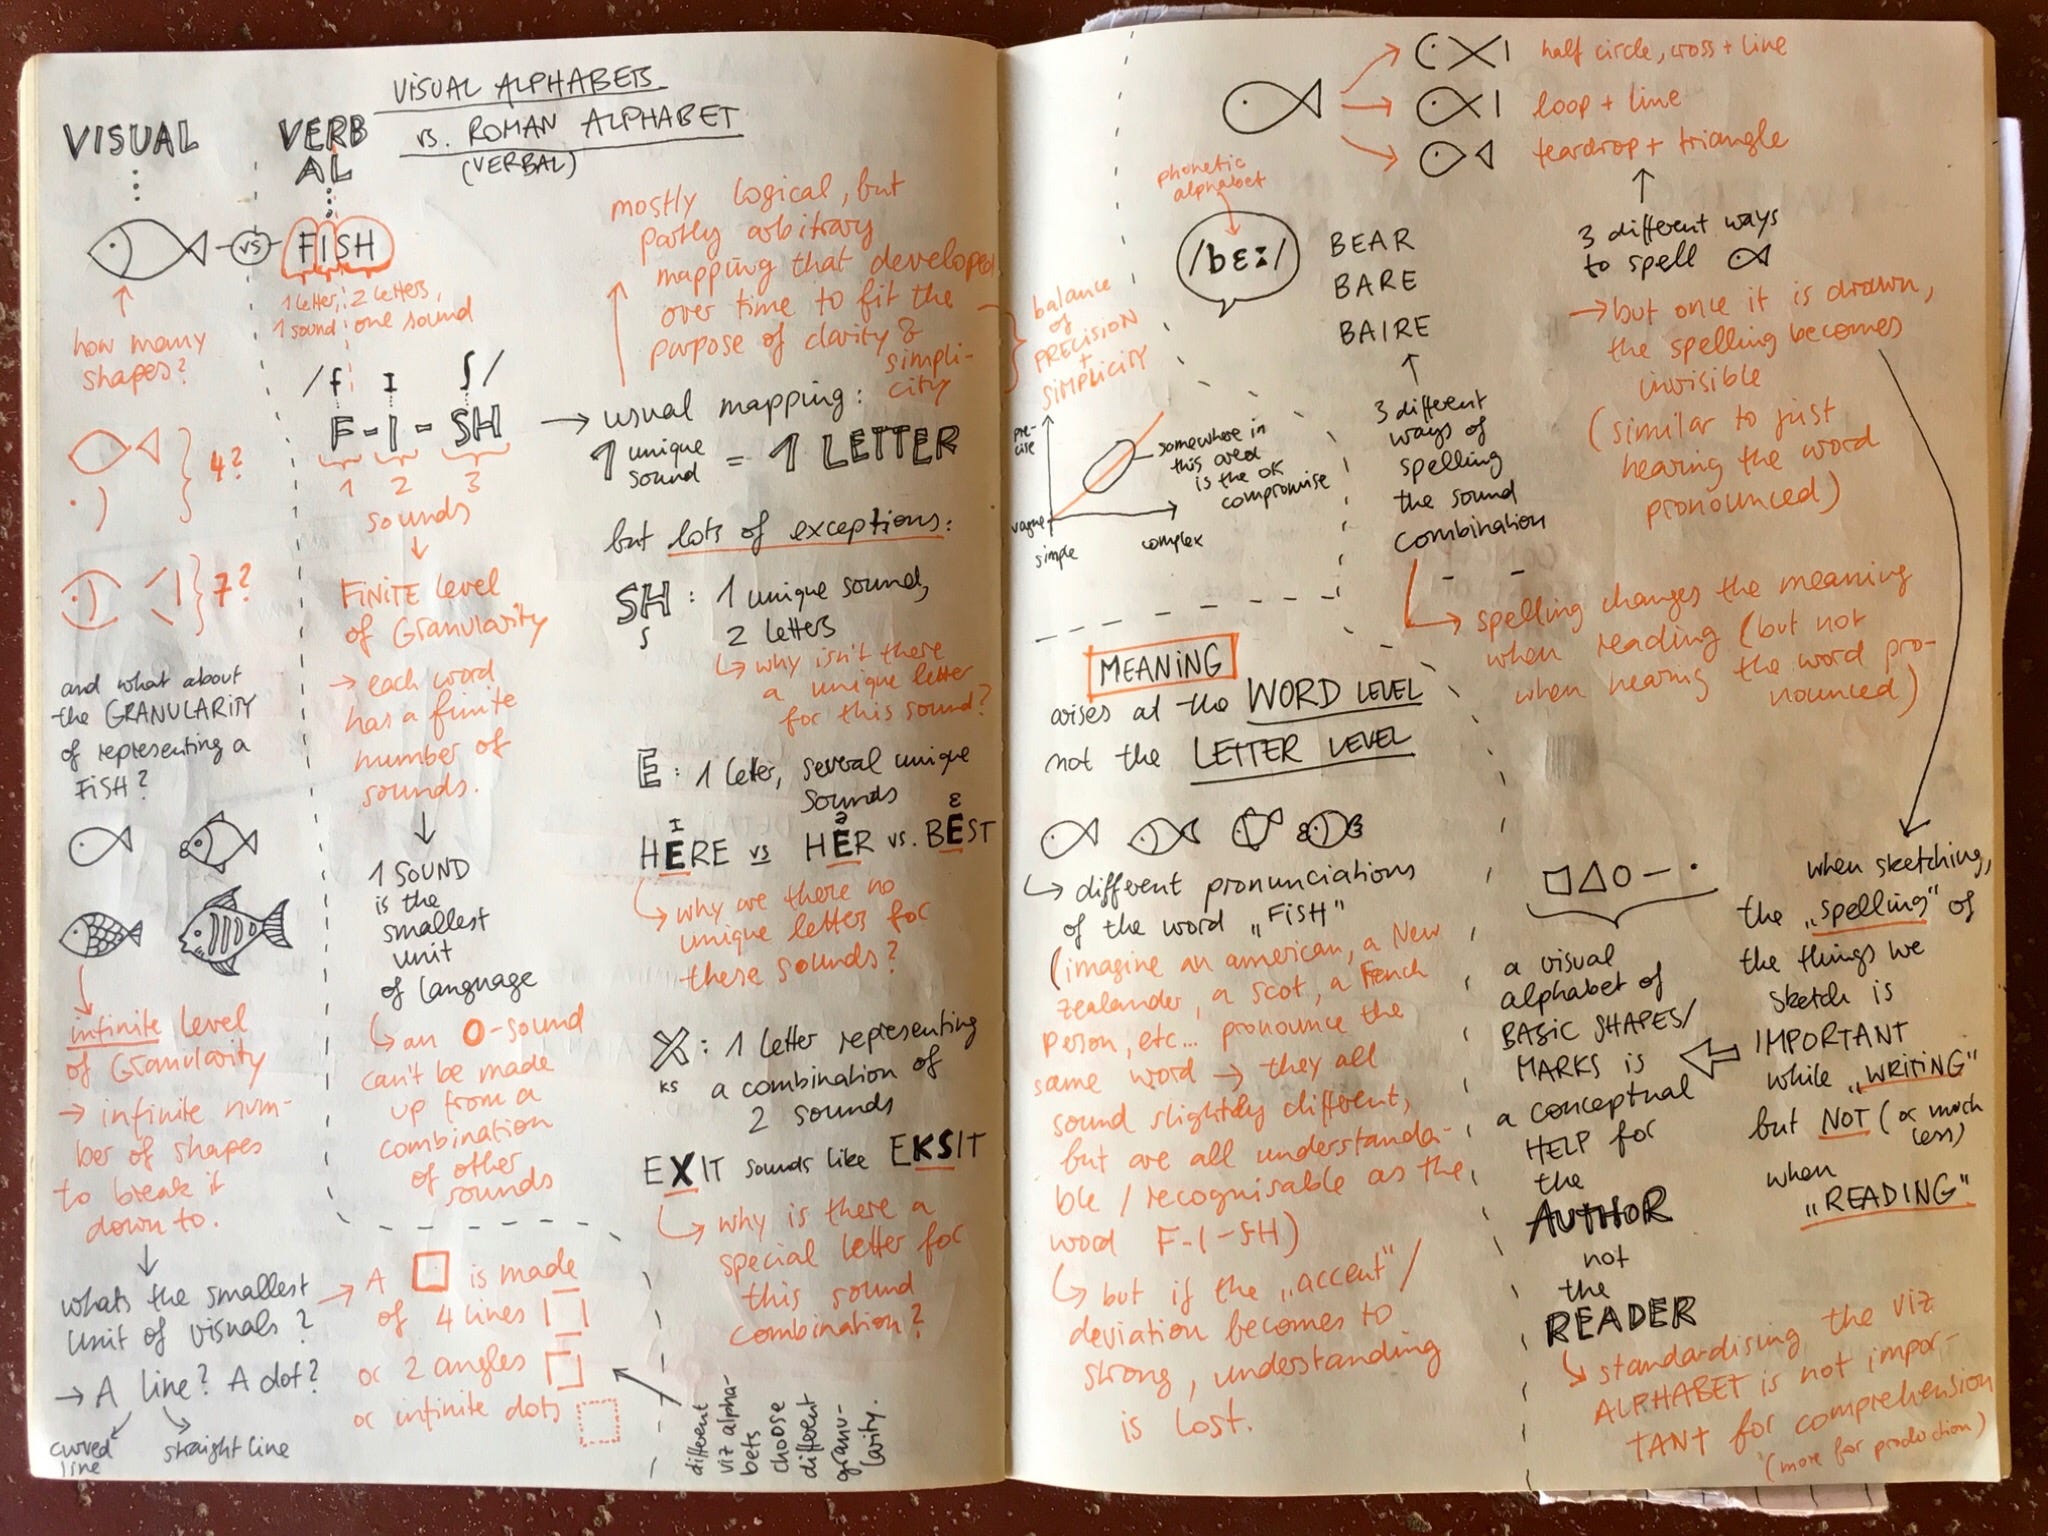 VISUAL ALPHABETS
vs. ROMAN ALPHABET
(VERBAL)
VISUAL
VERB
AL
vs
FISH
how many
shapes?
1 letter,
1 sound
2 letters,
one sound
/f I ʃ/
F-I-SH
1 2 3
sounds
4?
7?
and what about
the GRANULARITY
of representing a
FISH?
infinite level
of Granularity
→ infinite num-
ber of shapes
to break it
down to.
whats the smallest
unit of visuals?
→ A line? A dot?
curved
line
straight line
FINITE level
of Granularity
→ each word
has a finite
number of
sounds.
1 SOUND
is the
smallest
unit
of language
an O-sound
can't be made
up from a
combination
of other
sounds
→ A □ is made
of 4 lines
or 2 angles
or infinite dots
different
viz alpha-
bets
choose
different
granu-
larity.
mostly logical, but
partly arbitrary
mapping that developed
over time to fit the
purpose of clarity &
simpli-
city
→ usual mapping:
1 unique
sound = 1 LETTER
but lots of exceptions:
SH: 1 unique sound,
ʃ 2 letters
why isn't there
a unique letter
for this sound?
E: 1 letter, several unique
sounds
I ə ɛ
HERE vs HER vs. BEST
why are there no
unique letters for
these sounds?
X: 1 letter representing
ks a combination of
2 sounds
EXIT sounds like EKSIT
why is there a
special letter for
this sound
combination?
balance
of
PRECISION
+
SIMPLICITY
pre-
cise
vague
simple
complex
somewhere in
this area
is the OK
compromise
phonetic
alphabet
/bɛː/
BEAR
BARE
BAIRE
3 different
ways of
spelling
the sound
combination
→ spelling changes the meaning
when reading (but not
when hearing the word pro-
nounced)
half circle, cross + line
loop + line
teardrop + triangle
3 different ways
to spell
→ but once it is drawn,
the spelling becomes
invisible
(similar to just
hearing the word
pronounced)
MEANING
arises at the WORD LEVEL
not the LETTER LEVEL
different pronunciations
of the word „FISH"
(imagine an american, a New
Zealander, a Scot, a French
Person, etc... pronounce the
same word → they all
sound slightly different,
but are all understanda-
ble / recognisable as the
word F-I-SH)
but if the „accent"/
deviation becomes to
strong, understanding
is lost.
when sketching,
the „spelling" of
the things we
sketch is
IMPORTANT
while „WRITING"
but NOT (or much
less)
when
„READING"
a visual
alphabet of
BASIC SHAPES/
MARKS is
a conceptual
HELP for
the
AUTHOR
not
the
READER
standardising the viz
ALPHABET is not impor-
TANT for comprehension
(more for production)